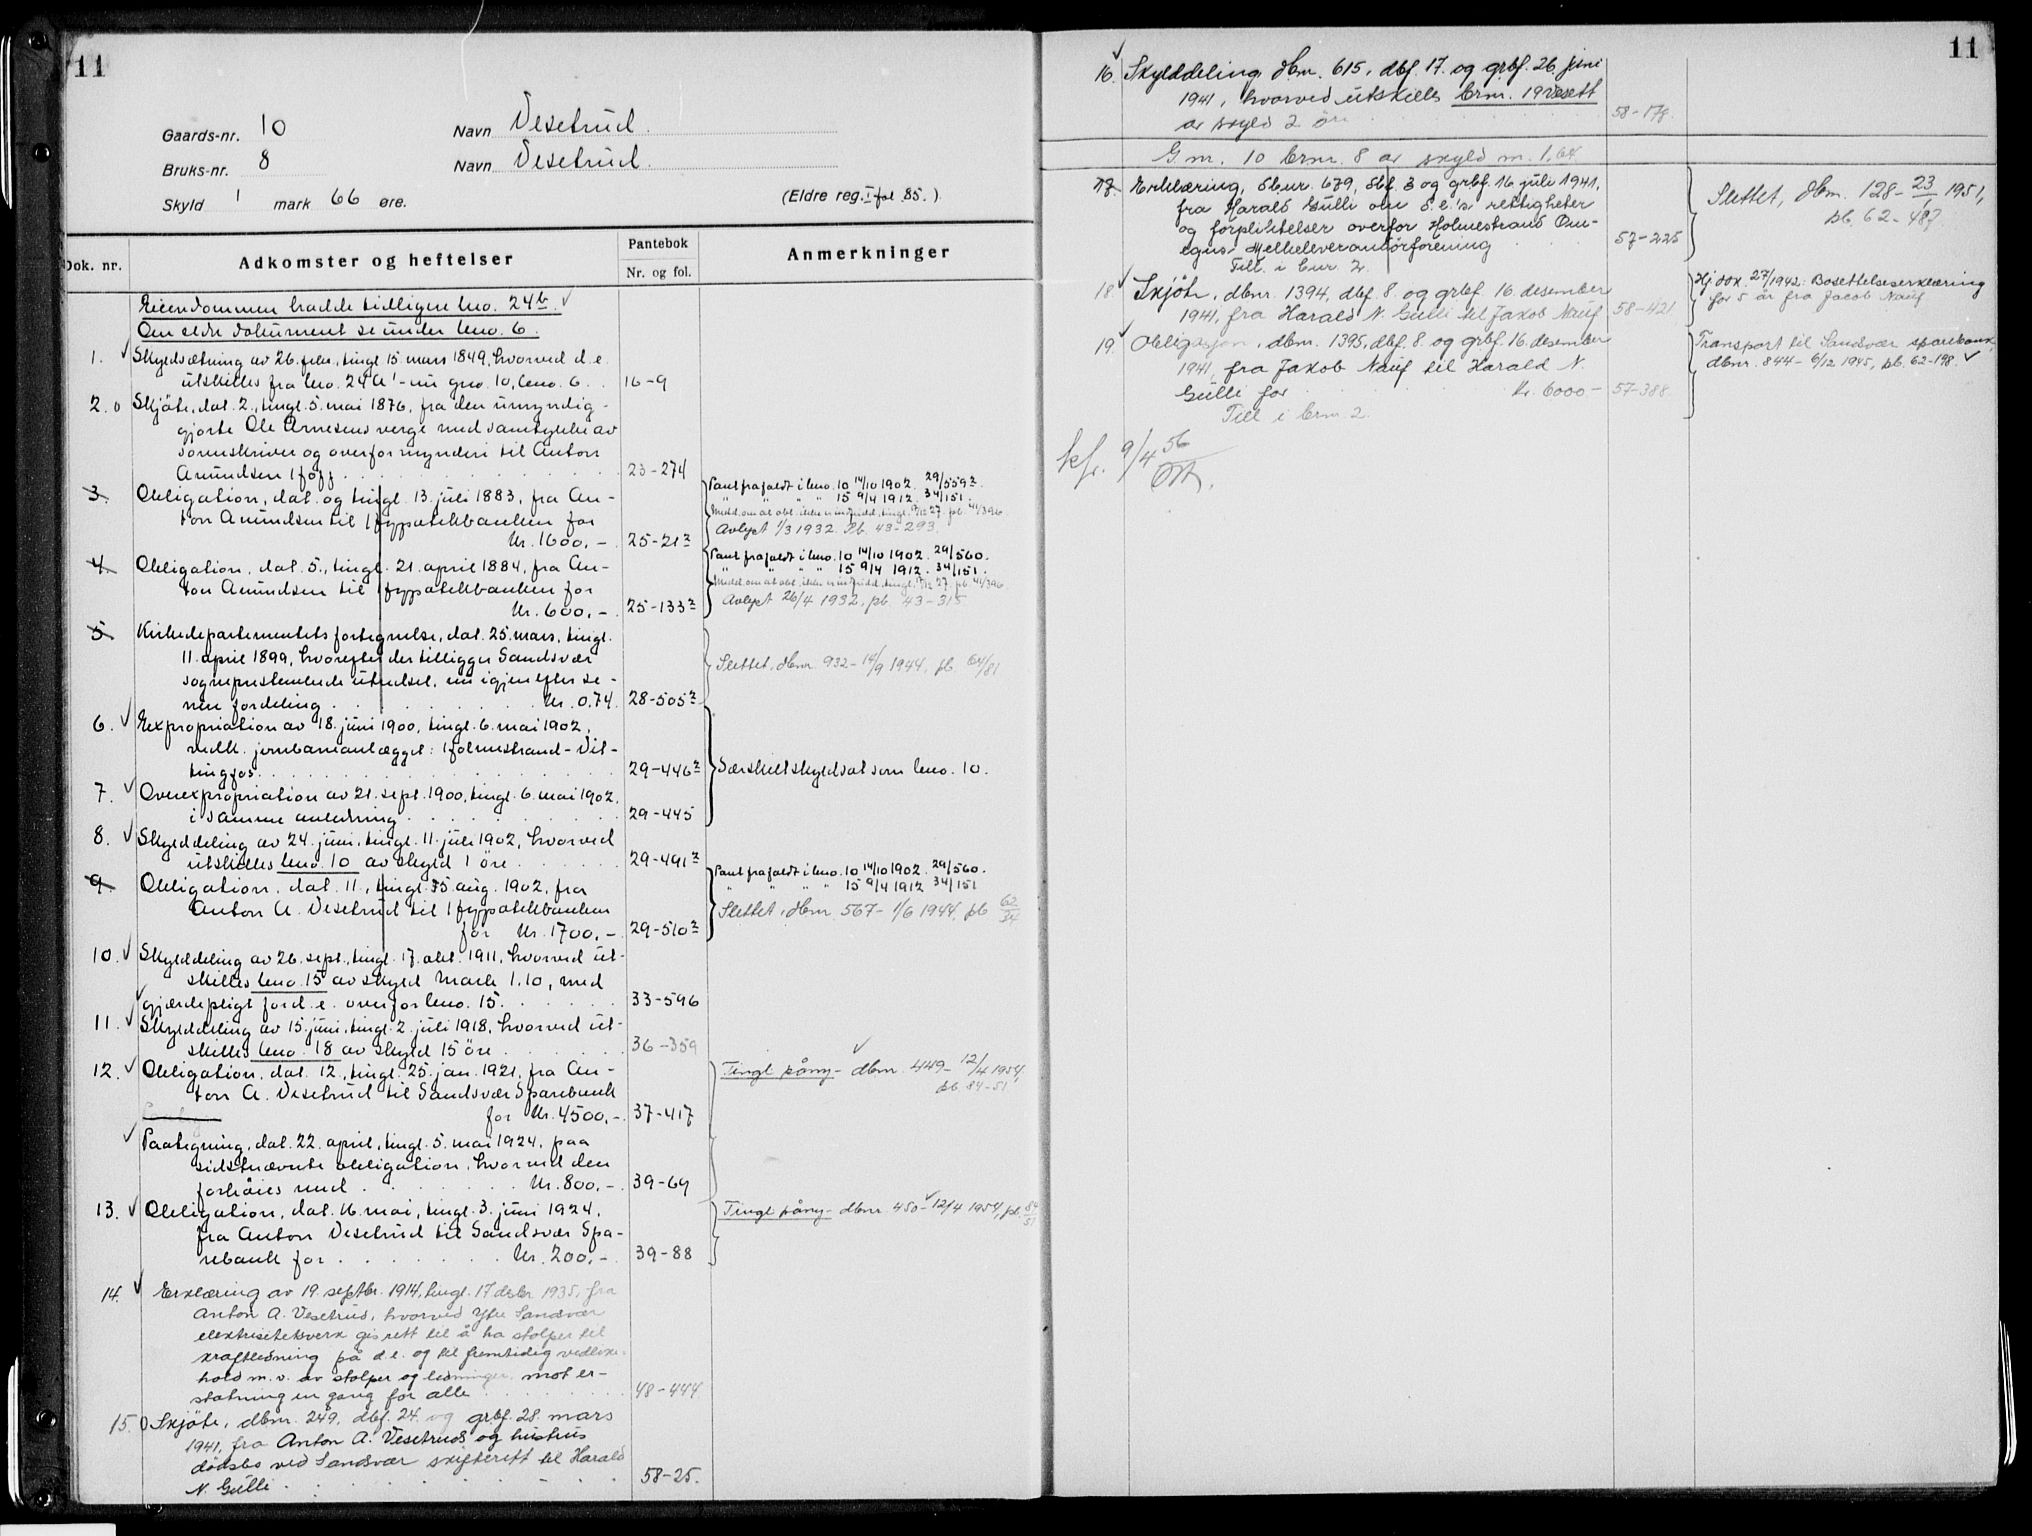 11
Gaards-nr. 10 Navn Vesetrud
Bruks-nr. 8 Navn Vesetrud
Skyld 1 mark 66 øre. (Eldre reg. I fol 85.)
Dok. nr. Adkomster og heftelser Pantebok Nr. og fol. Anmerkninger
Eiendommen hadde tidligere lno. 24b.
Om eldre dokument se under bno. 6.
1. Skyldsætning av 26. febr., tingl. 15. mars 1849, hvorved d.e.
utskilles fra lno. 24a - nu gno. 10, bno. 6. 16-9
2. Skjøte, dat. 2., tingl. 5. mai 1876, fra den umyndig-
gjorte Ole Arnesens verge med samtykke av
sorenskriver og overformynderi til Anton
Amundsen Hoff 23-274
3. Obligation, dat. og tingl. 13. juli 1883, fra An-
ton Amundsen til Hypotekbanken for
Kr. 1600,- 25-21
Pant frafaldt i bno. 10 14/10 1902. 29/559
" " " " 15 9/4 1912. 34/151.
Avlyst 1/3 1932. Pb. 43-293.
4. Obligation, dat. 5., tingl. 21. april 1884, fra An-
ton Amundsen til Hypotekbanken for
Kr. 600,- 25-133
Pant frafaldt i bno. 10 14/10 1902. 29/560.
" " " " 15 9/4 1912. 34/151.
Avlyst 26/4 1932, pb. 43-315
5. Kirkedepartementets fortegnelse, dat. 25. mars, tingl.
11. april 1899, hvorefter der tilligger Sandsvær
sogneprestembede utredsel, nu igjen efter se-
nere fordeling Kr. 0.74 28-505
Slettet, dbnr. 932 - 14/9 1944, pb. 64/81
6. Expropriation av 18. juni 1900, tingl. 6. mai 1902,
vedk. jernbaneanlægget: Holmestrand - Vit-
tingfos 29-446
Særskilt skyldsat som bno. 10.
7. Overexpropriation av 21. sept. 1900, tingl. 6. mai 1902,
i samme anledning 29-445
8. Skylddeling av 24. juni, tingl. 11. juli 1902, hvorved
utskilles bno. 10 av skyld 1 øre 29-491
9. Obligation, dat. 11., tingl. 15. aug. 1902, fra
Anton A. Vesetrud til Hypotekbanken
for Kr. 1700,- 29-510
Pant frafaldt i bno. 10 14/10 1902. 29/560.
" " " " 15 9/4 1912 34/151
Slettet, dbnr. 567 - 1/6 1944, pb 62/34
10. Skylddeling av 26. sept., tingl. 17. okt. 1911, hvorved ut-
skilles bno. 15 av skyld mark 1.10, med
gjerdepligt for d.e. overfor bno. 15. 33-596
11. Skylddeling av 15. juni, tingl. 2. juli 1918, hvorved ut-
skilles bno. 18 av skyld 15 øre 36-359
12. Obligation, dat. 12., tingl. 25. jan. 1921, fra An-
ton A. Vesetrud til Sandsvær Sparebank
for Kr. 4500,- 37-417
Tingl. påny - dbnr. 449 - 12/4 1954,
pb. 84-51
Paategning, dat. 22. april, tingl. 5. mai 1924, paa
sidstnævnte obligation, hvorved den
forhøies med Kr. 800,- 39-69
13. Obligation, dat. 16. mai, tingl. 3. juni 1924,
fra Anton Vesetrud til Sandsvær Spa-
rebank for Kr. 200,- 39-88
Tingl. påny - dbnr. 450 - 12/4 1954, pb. 84/51
14. Erklæring av 19. septbr. 1914, tingl. 17 desbr 1935, fra
Anton A. Vesetrud, hvorved Ytre Sandsvær
elektrisitetsverk gis rett til å ha stolper til
kraftledning på d.e. og til fremtidig vedlike-
hold m.v. av stolper og ledninger mot er-
statning en gang for alle 48-444
15. Skjøte, dbnr. 249, dbf. 24. og grbf. 28. mars
1941, fra Anton A. Vesetruds og hustrus
dødsbo ved Sandsvær skifterett til Harald
N. Gulli 58-25.
11
16. Skylddeling dbnr. 615, dbf. 17. og grbf. 26. juni
1941, hvorved utskilles brnr. 19 Vesett
av skyld 2 øre 58-178.
G.nr. 10 brnr. 8 av skyld m. 1,64
17. Erklæring, dbnr. 679, dbf. 3 og grbf. 16 juli 1941,
fra Harald Gulli om d.e.'s rettigheter
og forpliktelser overfor Holmestrand Om-
egns Melkeleverandørforening 57-225
Till. i bnr. 2.
Slettet, dbnr. 128 - 23/1 1951,
pb. 62-487
18. Skjøte, dbnr. 1394, dbf. 8. og grbf. 16. desember
1941, fra Harald N. Gulli til Jakob Nauf 58-421
Hj.dok. 27/1942: Bosettelseserklæring
for 5 år fra Jacob Nauf
19. Obligasjon, dbnr. 1395, dbf. 8. og grbf. 16. desember
1941, fra Jakob Nauf til Harald N.
Gulli for kr. 6000,- 57-388
Till i brnr. 2.
Transport til Sandsvær sparebank,
dbnr. 844 - 6/12 1945, pb. 62-198.
kfr. 9/4 56